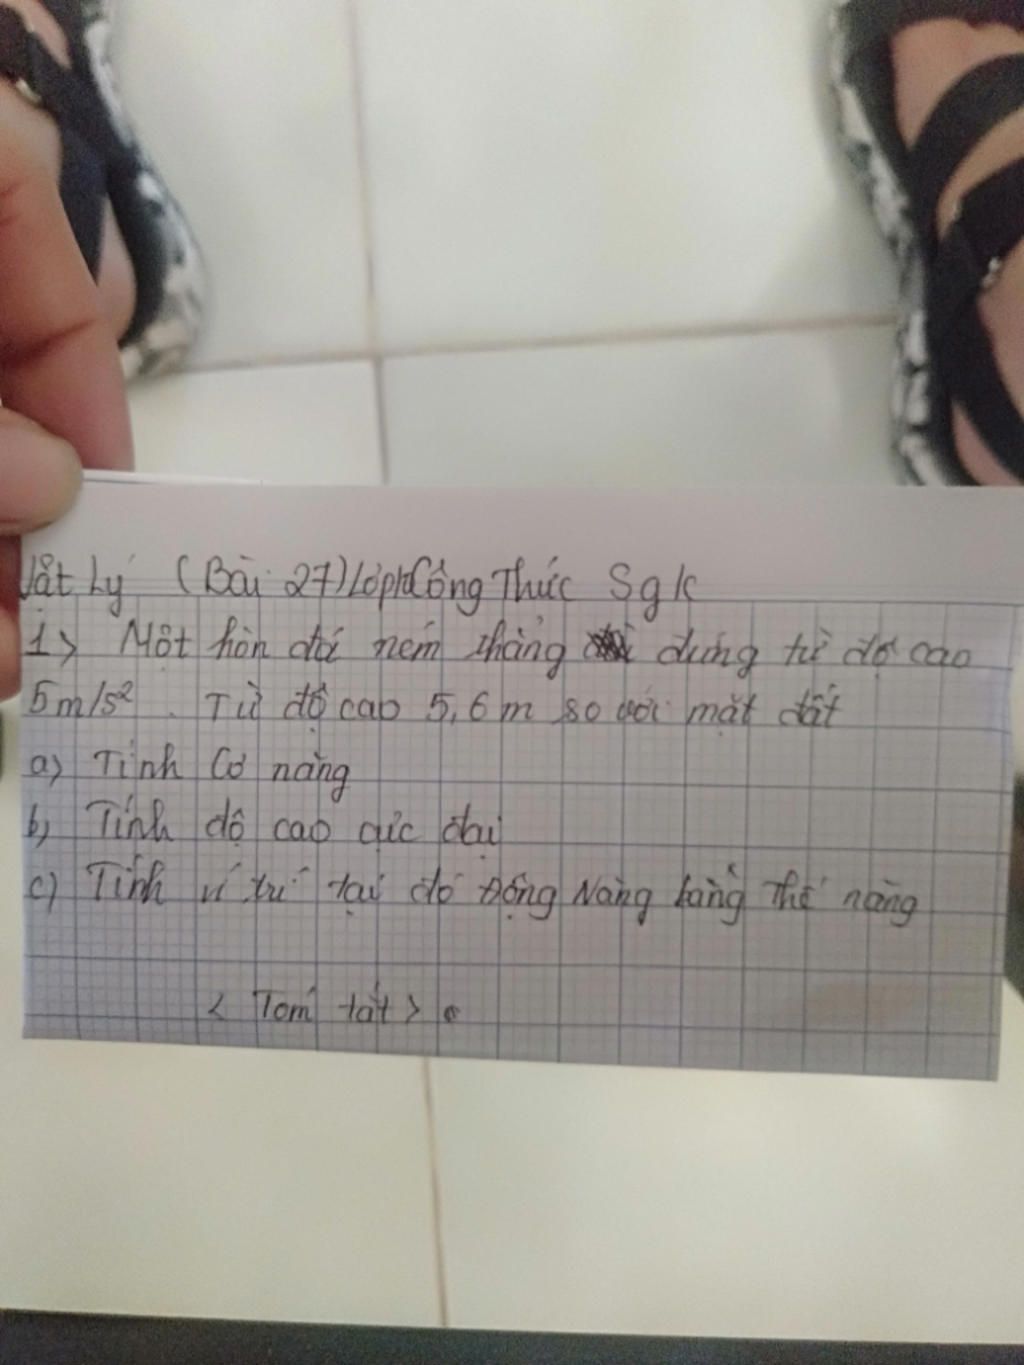 Vật Lý (Bài 27) Lớp 10 Công Thức Sgk
1> Một hòn đá ném thẳng dứng từ độ cao
5m/s². Từ độ cao 5,6m so với mặt đất
a) Tính Cơ năng
b) Tính độ cao cực đại
c) Tính ví trí tại đó Động Năng bằng Thế năng
< Tóm tắt >